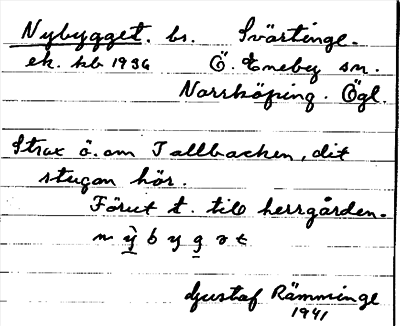 Nybygget. bs. Svärtinge.
ek. kb 1936 Ö. Eneby sn.
Norrköping. Ögl.
Strax ö. om Tallbacken, dit
stugan hör.
Förut t. till herrgården.
n ỳ̲ b y g̲ ə t
Gustaf Rämminge
1941